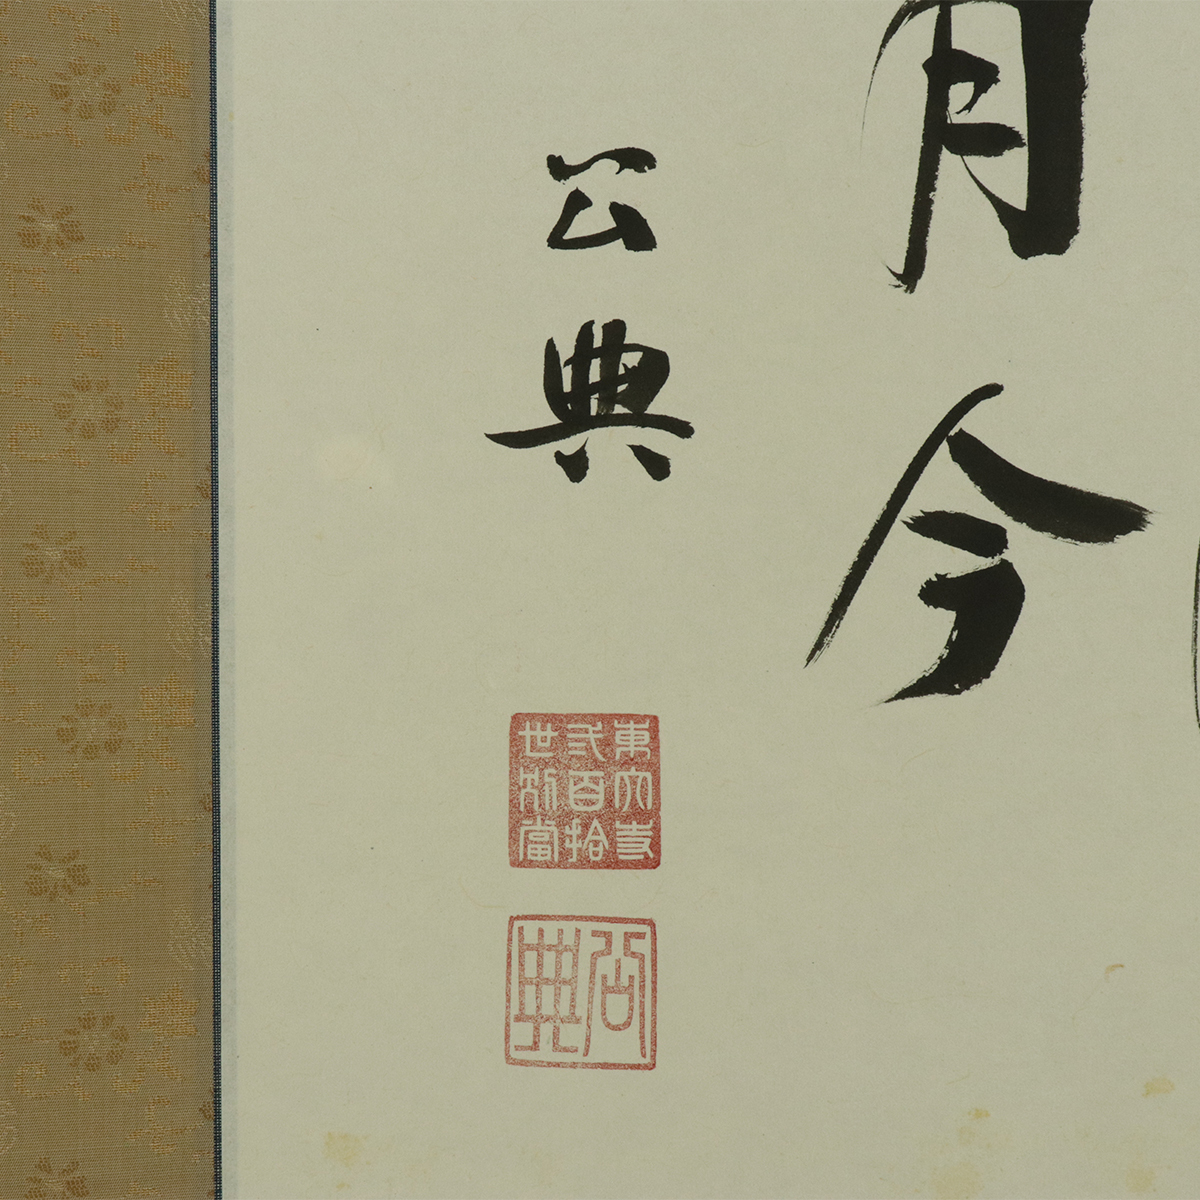 今
公典
東大寺
弍百拾
世別當
公典